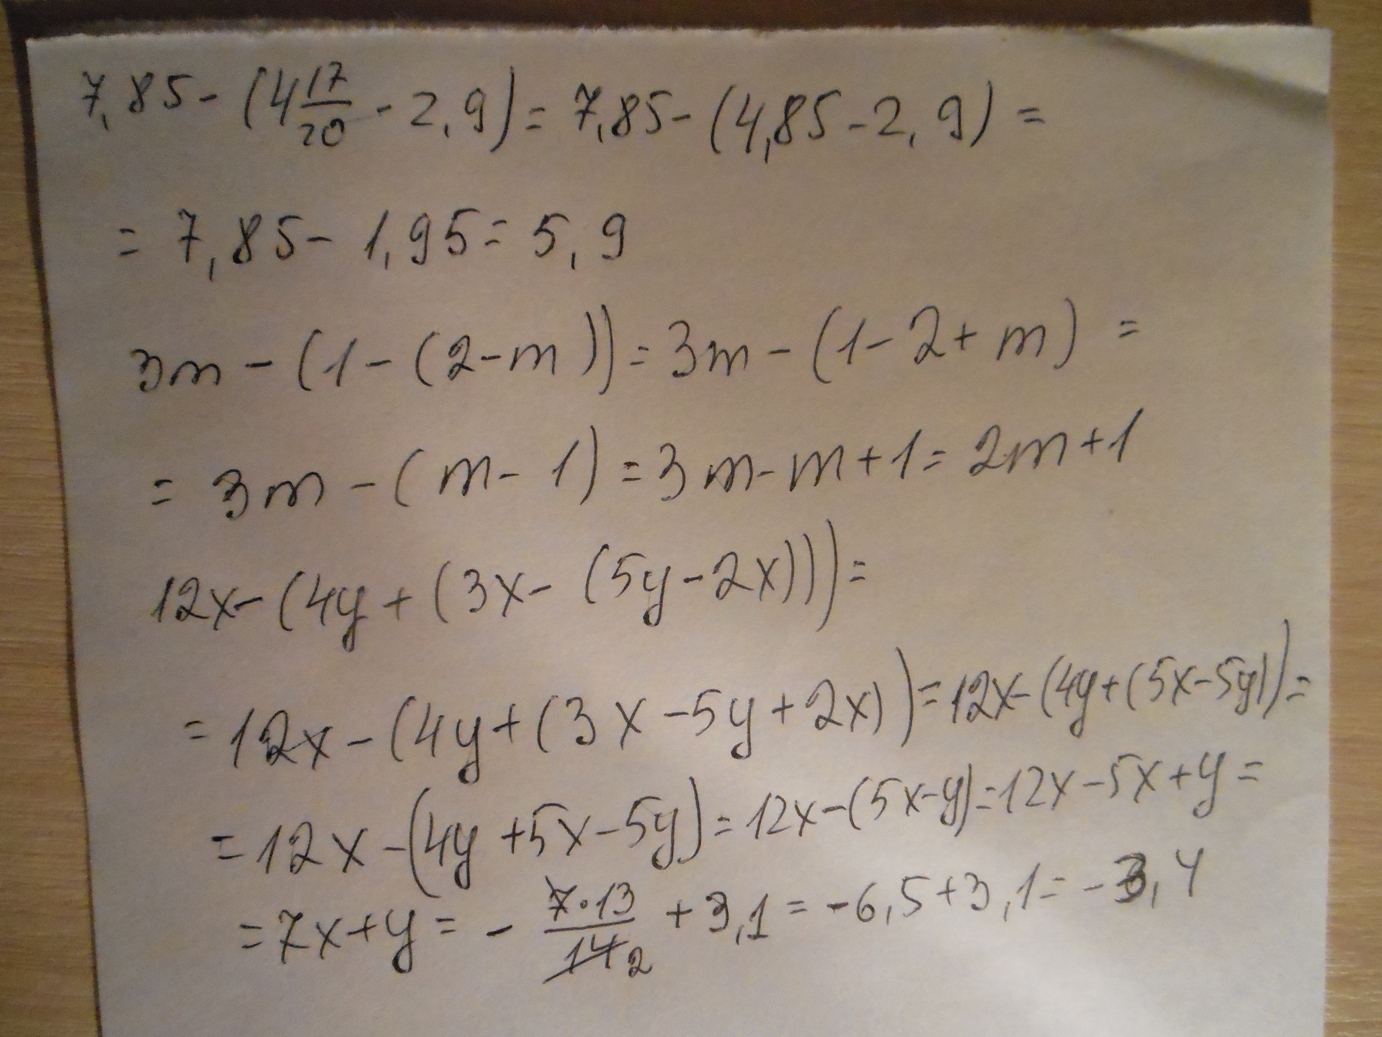 7,85 - (4 17/20 - 2,9) = 7,85 - (4,85 - 2,9) =
= 7,85 - 1,95 = 5,9
3m - (1 - (2 - m)) = 3m - (1 - 2 + m) =
= 3m - (m - 1) = 3m - m + 1 = 2m + 1
12x - (4y + (3x - (5y - 2x))) =
= 12x - (4y + (3x - 5y + 2x)) = 12x - (4y + (5x - 5y)) =
= 12x - (4y + 5x - 5y) = 12x - (5x - y) = 12x - 5x + y =
= 7x + y = - 7·13/14 2 + 3,1 = -6,5 + 3,1 = -3,4